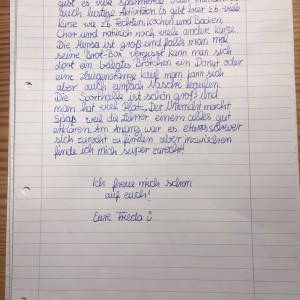 gibt es viele spannende oder manchmal
auch lustige Aktivitäten. Es gibt hier so viele
Kurse wie zB. Fechten, Kochen und Backen,
Chor und natürlich noch viele andere Kurse.
Die Mensa ist groß und falls man mal
seine Brot-Box vergisst kann man sich
dort ein belegtes Brötchen ein Donut oder
eine Laugenstange kauf man kann sich
aber auch einfach Nasche kaufen.
Die Sporthalle ist schön groß und
man hat viel Platz. Der Unterricht macht
Spaß weil die Lehrer einem alles gut
erklären. Am Anfang war es etwas schwer
sich zurecht zu finden aber inzwischen
finde ich mich super zurecht!
Ich freue mich schon
auf euch!
Eure Frieda